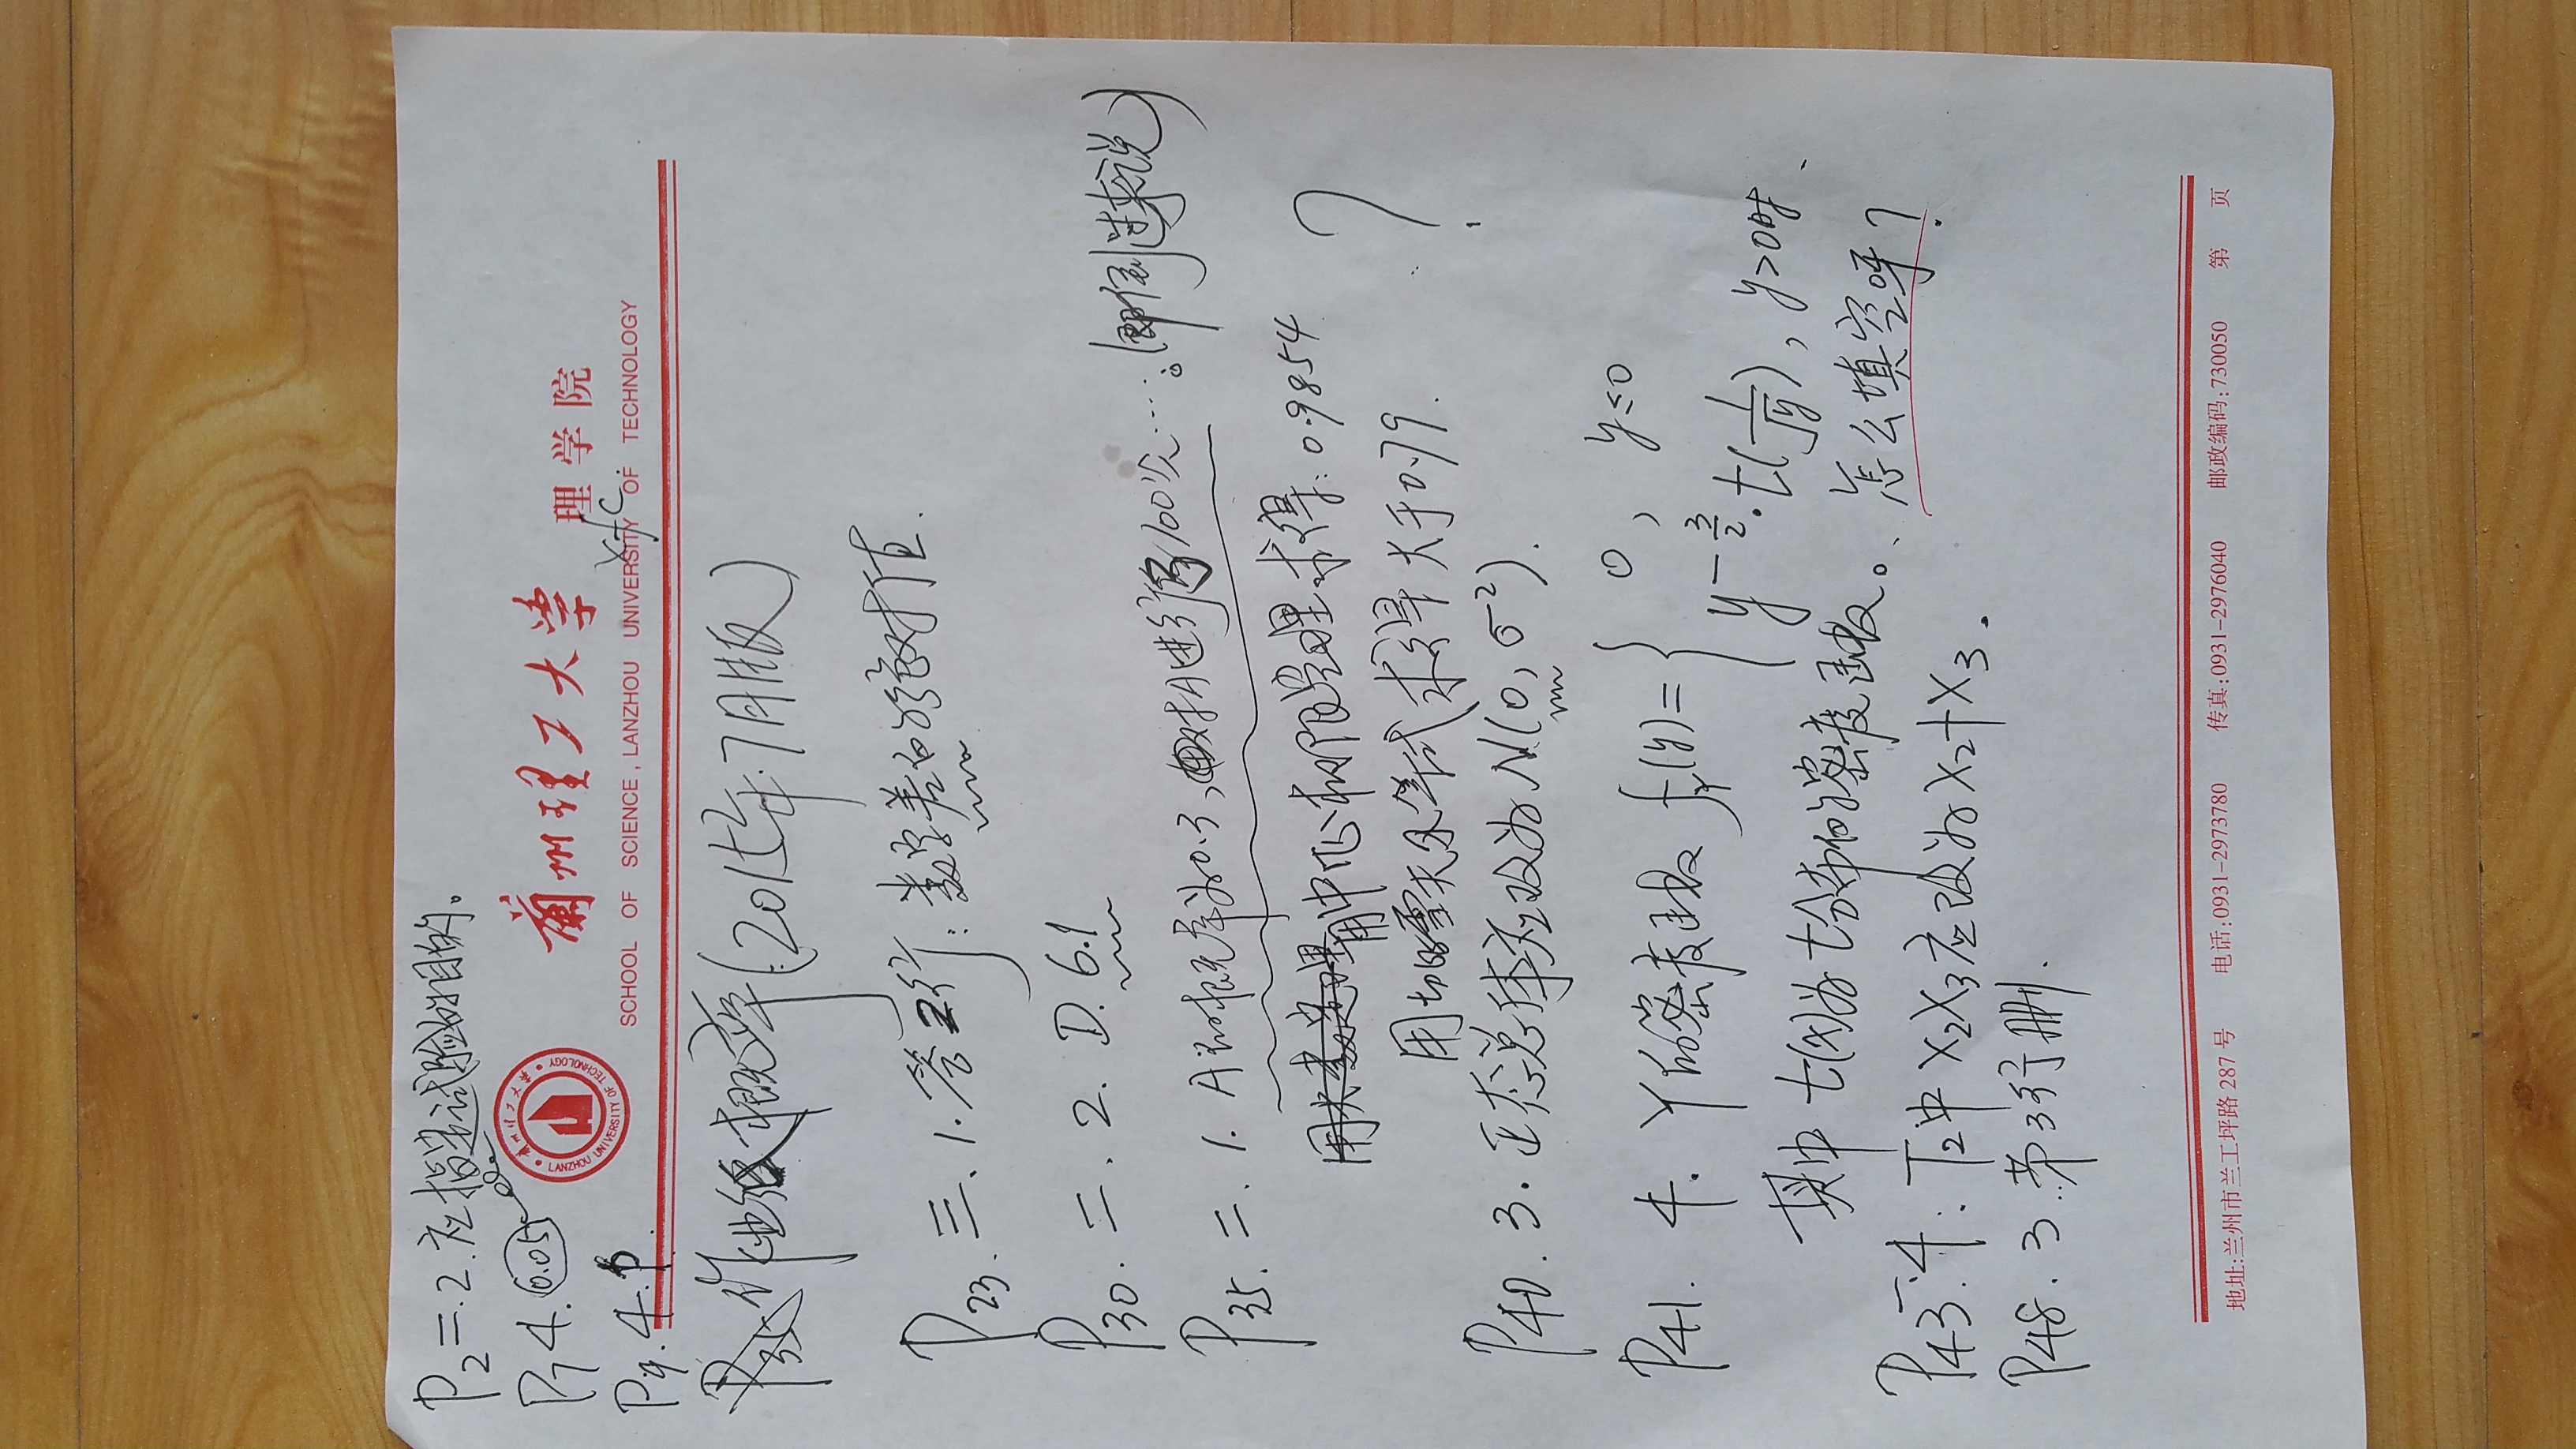 P2 二.2.应指定试验的目的。
P7 4. 0.05
兰州理工大学
LANZHOU UNIVERSITY OF TECHNOLOGY
蘭州理工大学 理学院
P9. 4. p.
SCHOOL OF SCIENCE, LANZHOU UNIVERSITY OF TECHNOLOGY
作业纸概率(2015年.7月版)
P23. 三、1. 答2行: 数字差的绝对值.
P30. 二. 2. D. 6.1
P35. 二. 1. A的概率为0.3, 对A进行了100次…。(即倒过来说)
用中心极限定理求得: 0.9854
用切比雪夫不等式求得大于0.79. ?
P40. 3. 正态总体应改为N(0, σ²).
P41. 4. Y的密度函数 f_Y(y) = { 0, y≤0
y^{-3/2}·t(1/√y), y>0时、
其中 t(x)为 t分布的密度函数。、怎么填空呀?
P43. 一.4: T2中 X2X3应改为X2+X3.
P48. 3. 第3行删.
地址:兰州市兰工坪路 287 号 电话:0931-2973780 传真:0931-2976040 邮政编码:730050 第 页